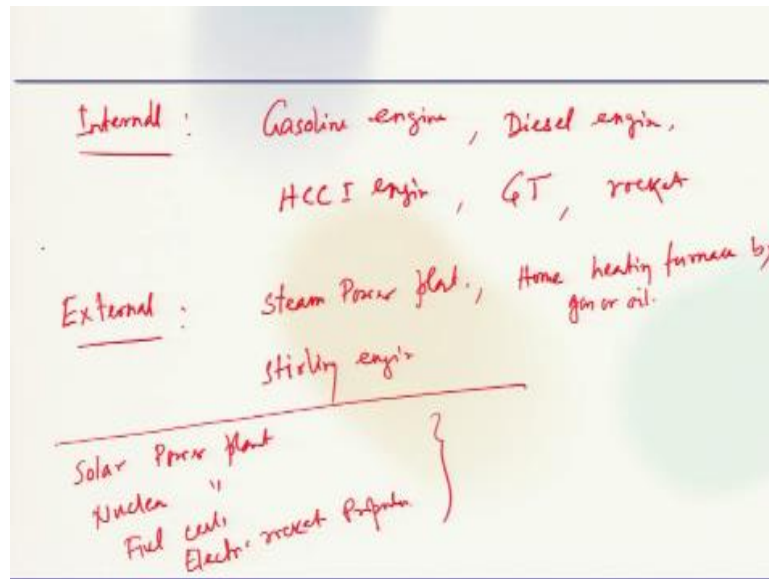 Internal : Gasoline engine, Diesel engin,
HCCI engin, GT, rocket
External : Steam Power plant., Home heating furnace by
gas or oil.
Stirling engin
Solar Power plant
Nuclea "
Fuel cell,
Electri rocket Propulsion